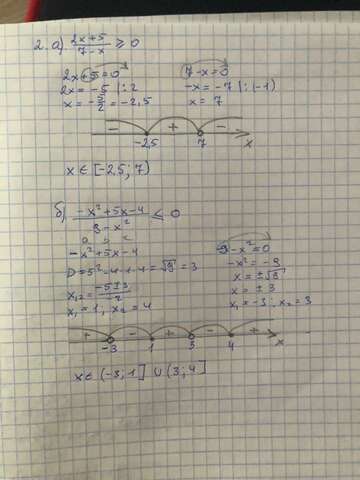 2. а) 2x+5 / 7-x ≥ 0
2x+5=0
2x = -5 |:2
x = -5/2 = -2,5
7-x=0
-x = -7 |:(-1)
x = 7
- + -
-2,5 7 x
x ∈ [-2,5; 7)
б) -x²+5x-4 / 9-x² ≤ 0
a b c
-x²+5x-4
D=5²-4·1·4=√9=3
x₁,₂ = -5±3 / 2
x₁=1; x₂=4
9-x²=0
-x²=-9
x=±√9
x=±3
x₁=-3; x₂=3
+ - + - +
-3 1 3 4 x
x ∈ (-3; 1] ∪ (3; 4]